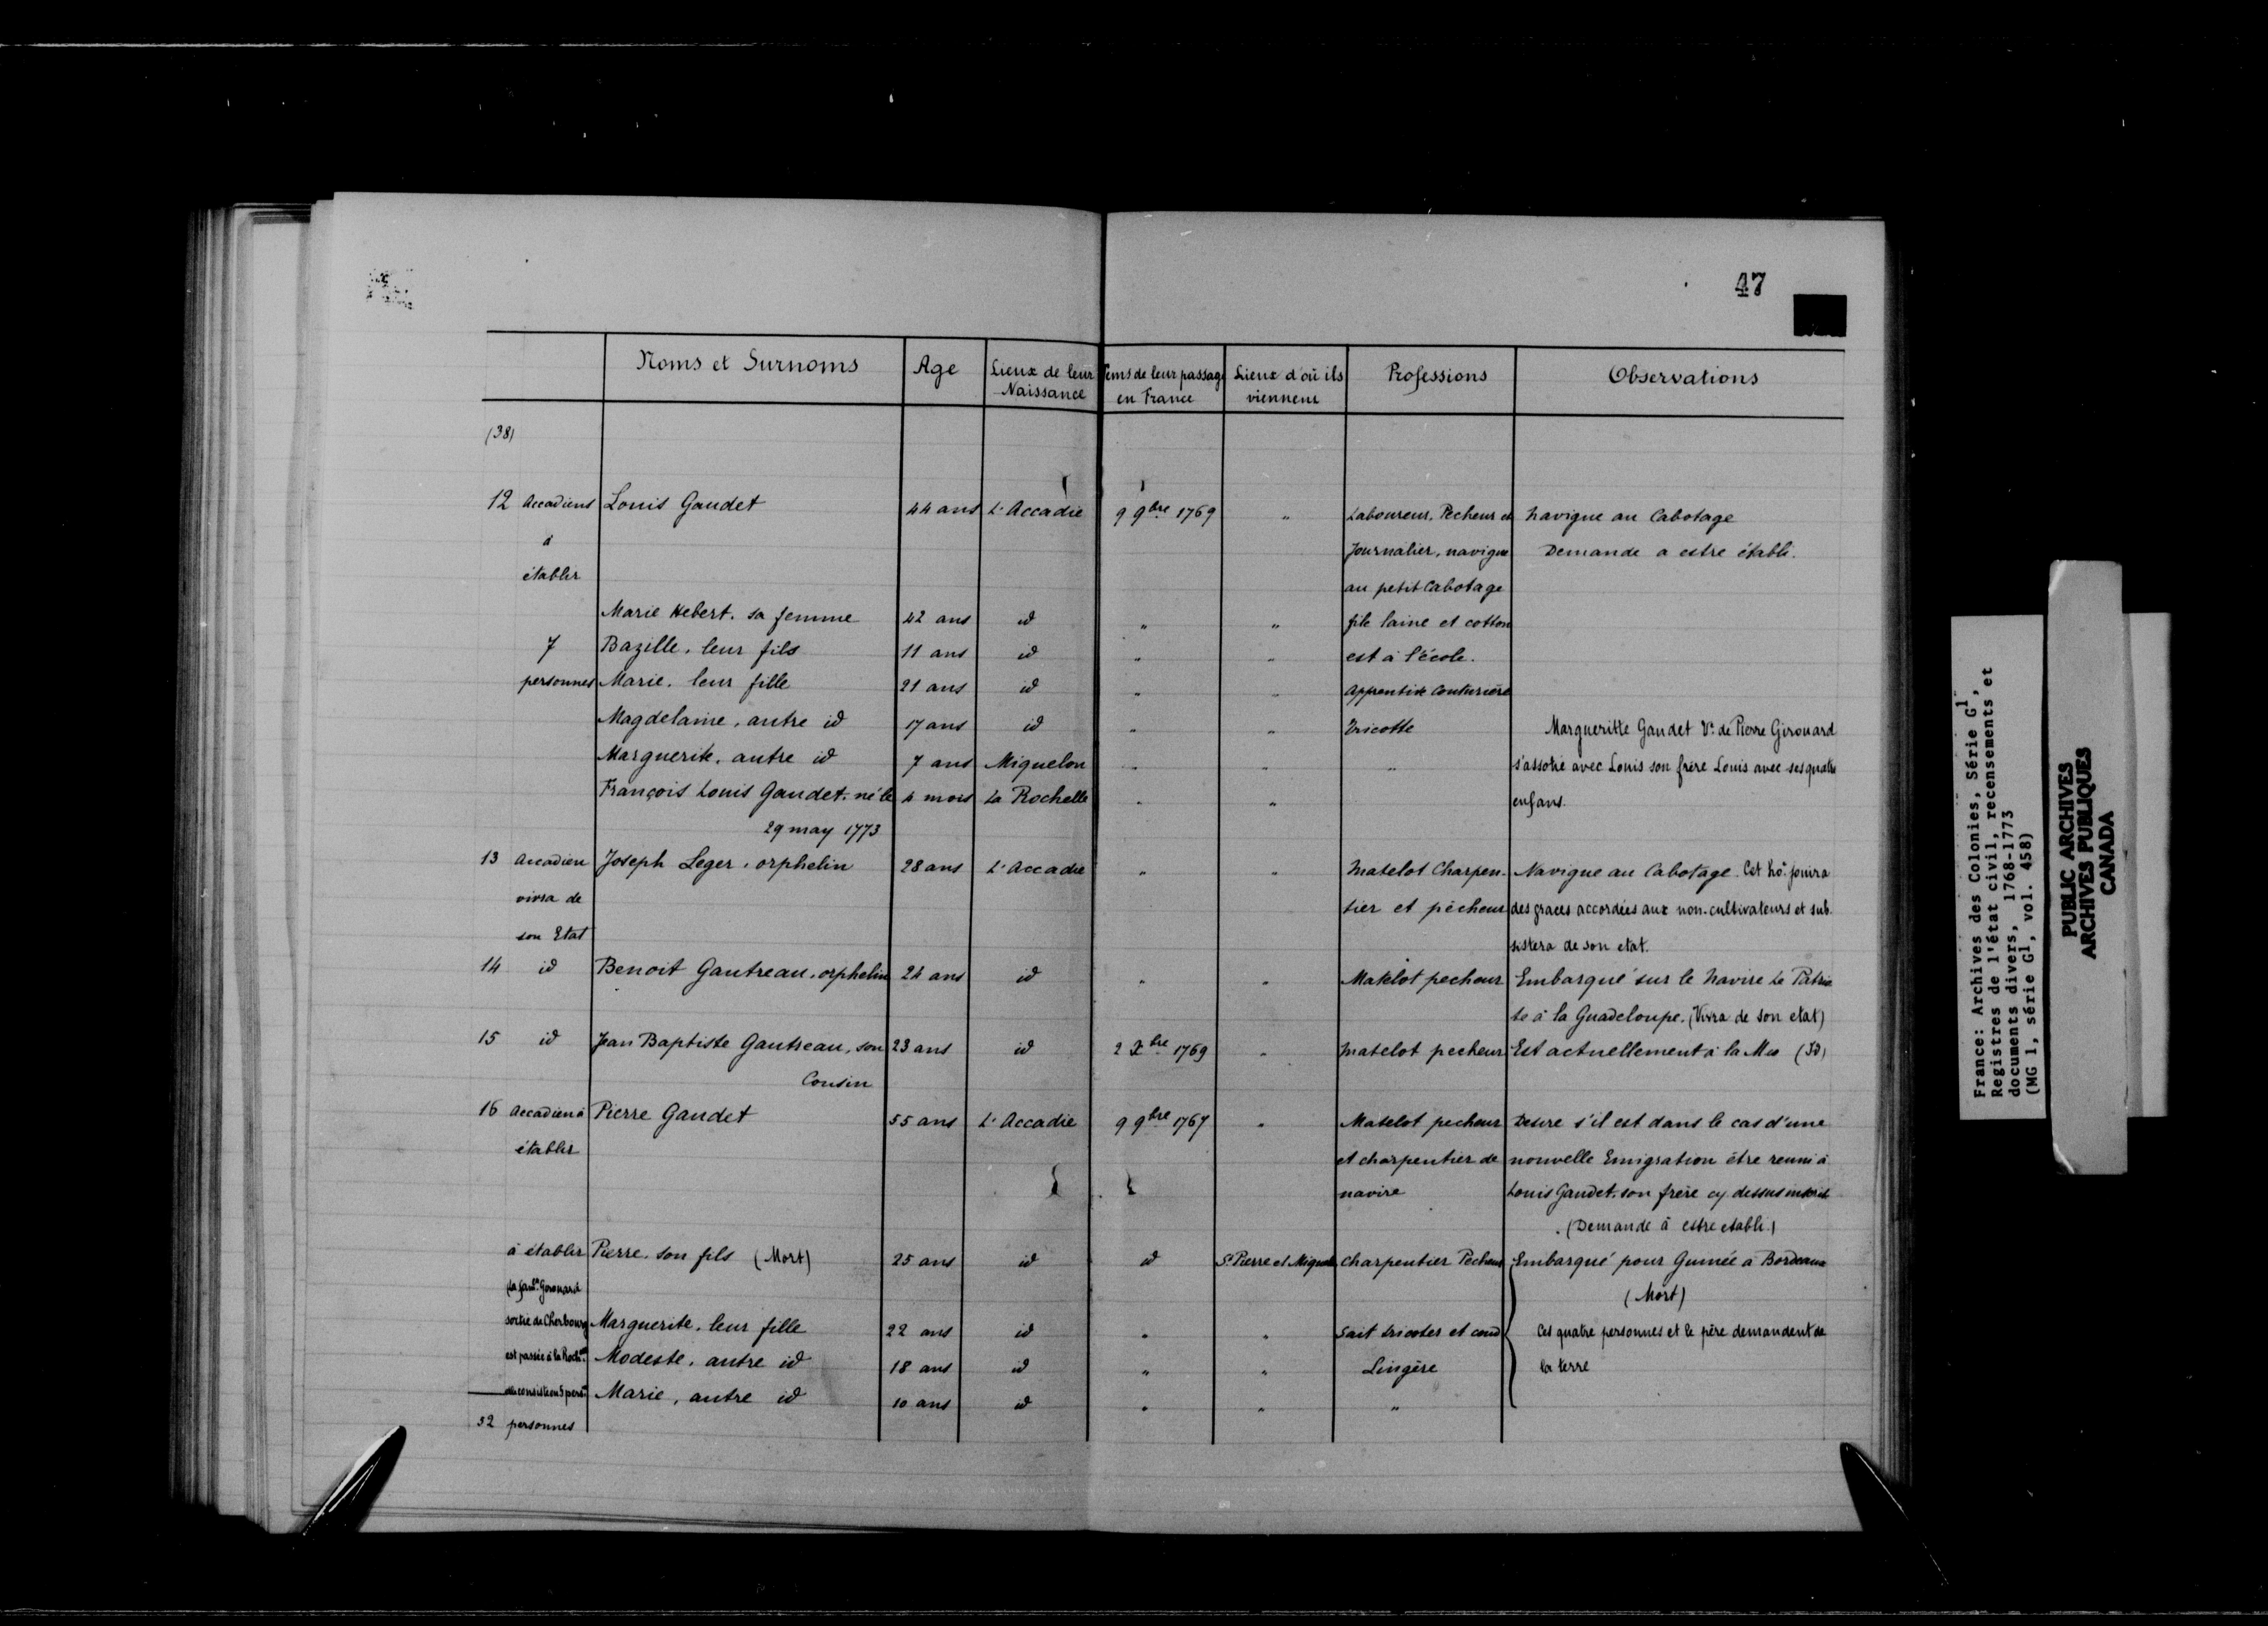 47
Noms et Surnoms | Age | Lieux de leur Naissance | Tems de leur passage en France | Lieux d'où ils viennent | Professions | Observations
(38)
12 Accadiens Louis Gaudet 44 ans L'Accadie 9 9bre 1769 " Laboureur, Pecheur et Navigue au Cabotage
à Journalier, navigue Demande a estre établi.
établir au petit Cabotage
Marie Hebert. sa femme 42 ans id " " file laine et cotton
7 Bazille, leur fils 11 ans id " " est à l'école.
personnes Marie. leur fille 21 ans id " " Apprentive Couturière
Magdelaine, autre id 17 ans id " " Tricotte Margueritte Gaudet Ve de Pierre Girouard
Marguerite, autre id 7 ans Miquelon " " " s'assotie avec Louis son frère Louis avec ses quatre
François Louis Gaudet. né le 4 mois La Rochelle " " enfans.
29 may 1773
13 Accadien Joseph Leger, orphelin 28 ans L'Accadie " " Matelot Charpen- Navigue au Cabotage. Cet ho: jouira
vivra de tier et pècheur des graces accordées aux non-cultivateurs et sub-
son Etat sistera de son etat.
14 id Benoit Gautreau, orphelin 24 ans id " " Matelot pecheur Embarqué sur le Navire Le Patrio
te à la Guadeloupe. (Vivra de son etat)
15 id Jean Baptiste Gautreau, son 23 ans id 2 Xbre 1769 " Matelot pecheur Est actuellement à la Mer (Id)
Cousin
16 Accadien à Pierre Gaudet 55 ans L'Accadie 9 9bre 1767 " Matelot pecheur Desire s'il est dans le cas d'une
établir et charpentier de nouvelle Emigration être reuni à
navire Louis Gaudet, son frère cy dessus inscrit
(Demande à estre etabli.)
à établir Pierre. son fils (Mort) 25 ans id id St Pierre et Miquelon Charpentier Pecheur Embarqué pour Guinée a Bordeaux
(la famle Girouard (Mort)
sortie de Cherbourg Marguerite. leur fille 22 ans id " " Sait tricoter et coud Ces quatre personnes et le père demandent de
est passée à la Rochle Modeste, autre id 18 ans id " " Lingère la terre
elle consiste en 5 persnes Marie, autre id 10 ans id " " "
52 personnes
France: Archives des Colonies, Série G1,
Registres de l'état civil, recensements et
documents divers, 1768-1773
(MG 1, série G1, vol. 458)
PUBLIC ARCHIVES
ARCHIVES PUBLIQUES
CANADA